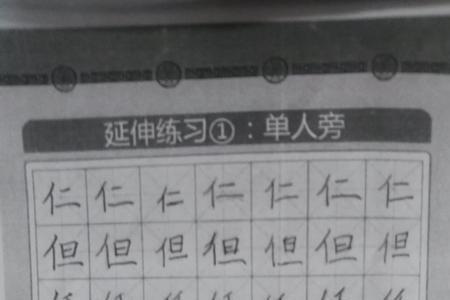 延伸练习①：单人旁
仁仁仁仁仁仁仁
但但但但但但但